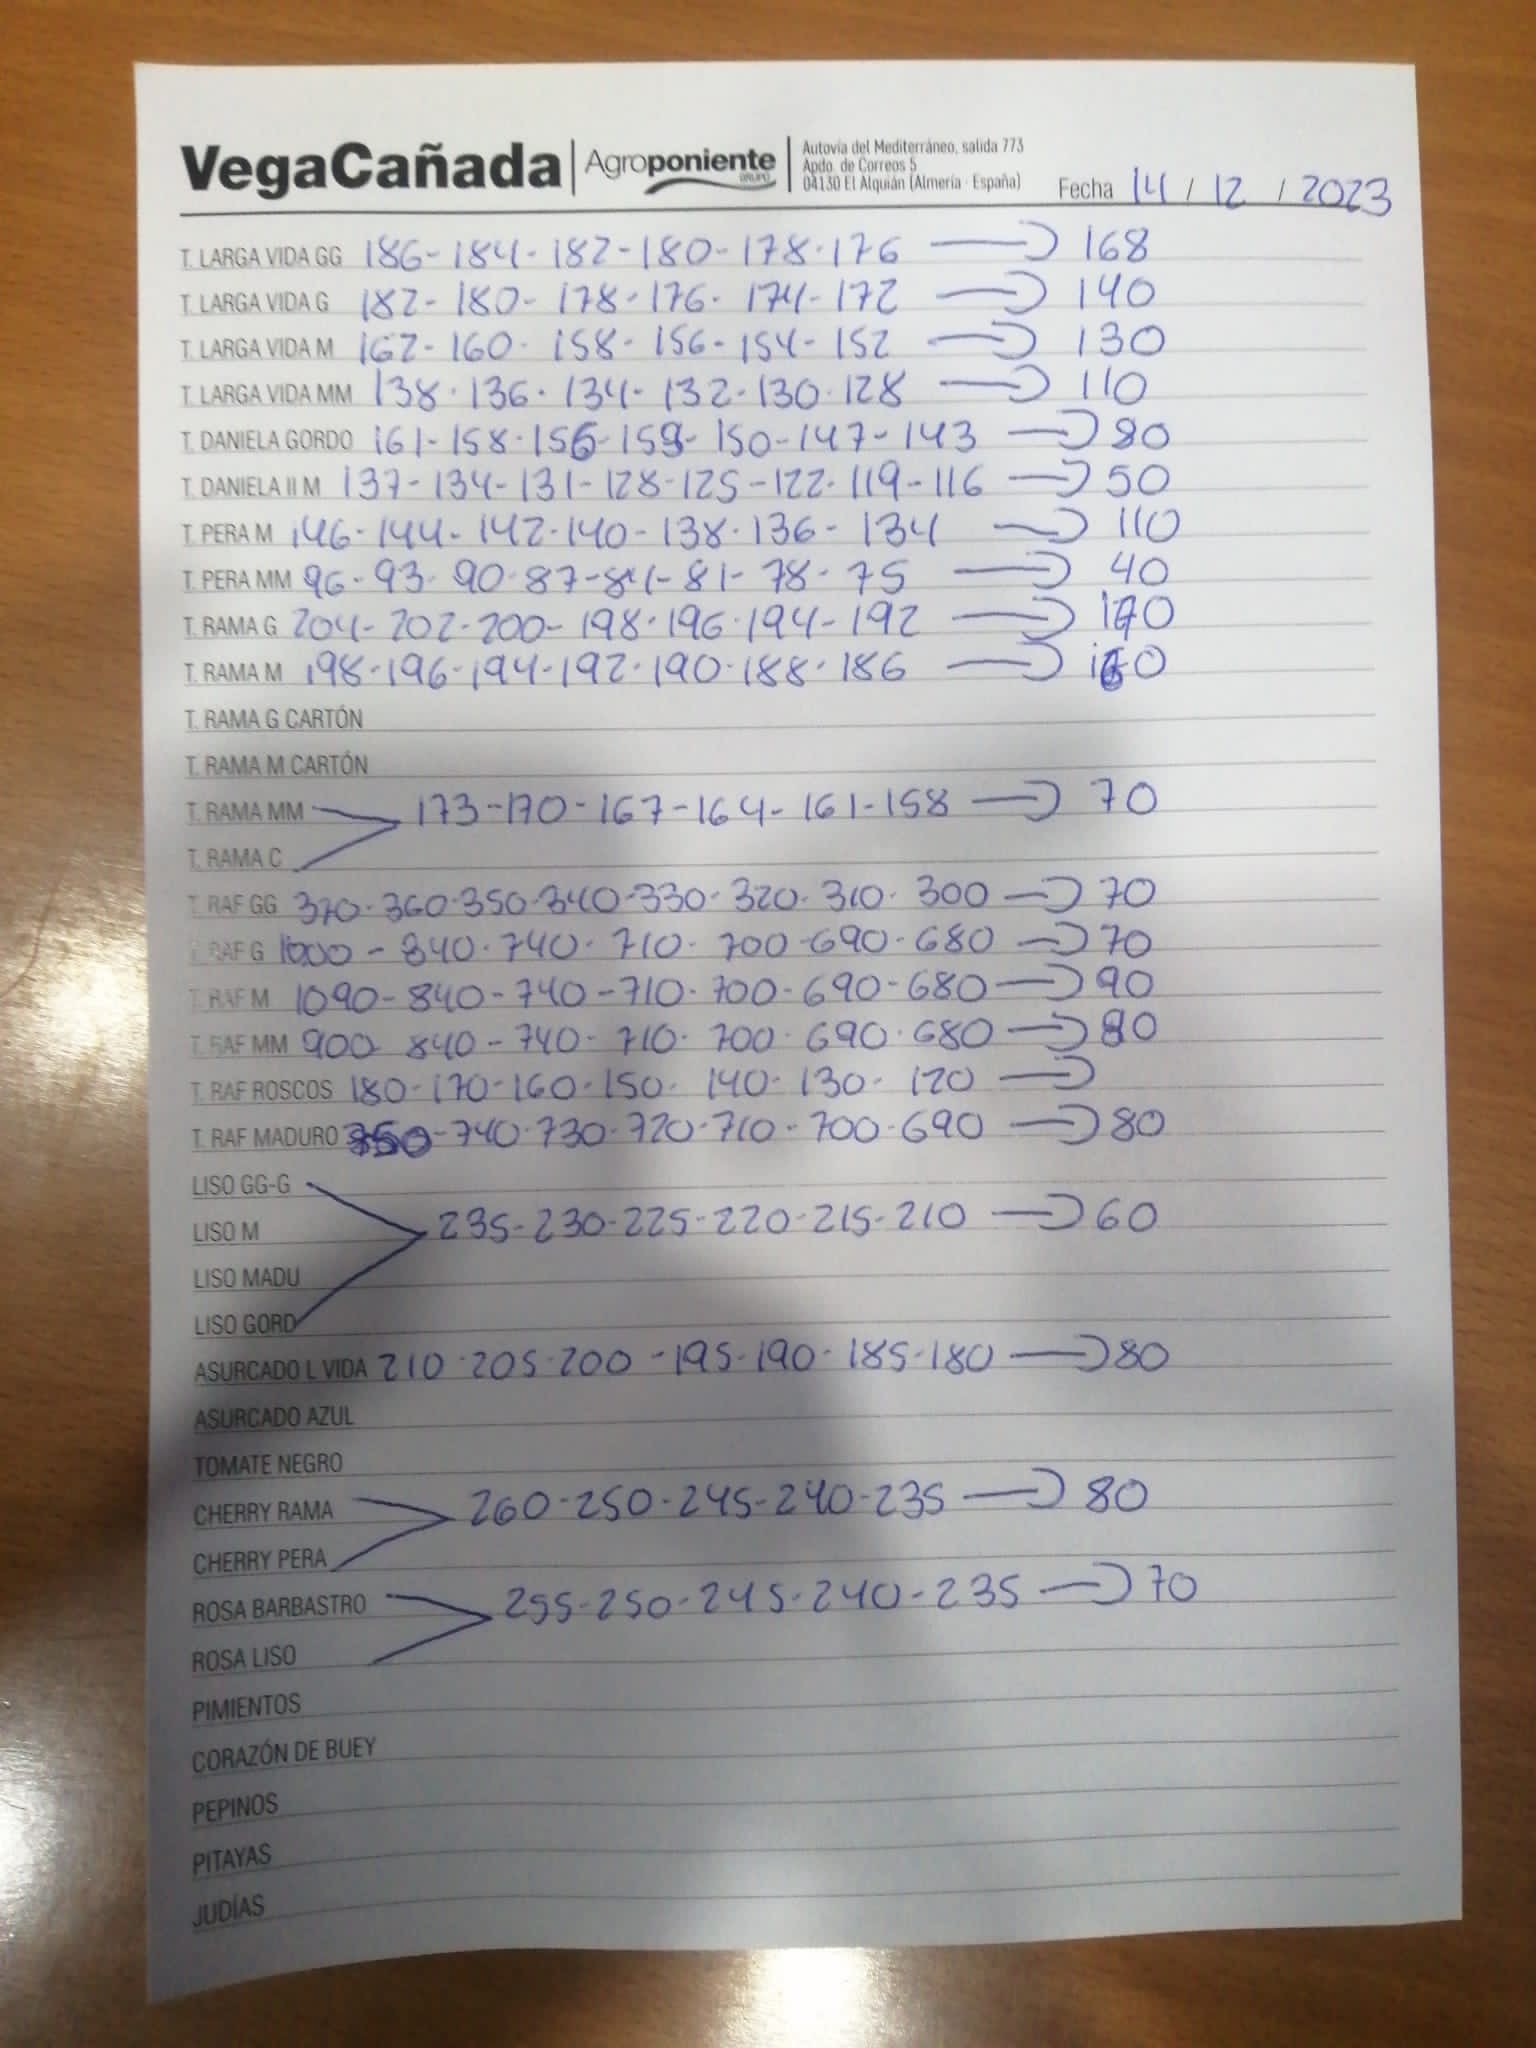 VegaCañada | Agroponiente GRUPO | Autovía del Mediterráneo, salida 773
Apdo. de Correos 5
04130 El Alquián (Almería - España)
Fecha 14 / 12 / 2023
T. LARGA VIDA GG 186-184-182-180-178-176 → 168
T. LARGA VIDA G 182-180-178-176-174-172 → 140
T. LARGA VIDA M 162-160-158-156-154-152 → 130
T. LARGA VIDA MM 138-136-134-132-130-128 → 110
T. DANIELA GORDO 161-158-156-159-150-147-143 → 80
T. DANIELA II M 137-134-131-128-125-122-119-116 → 50
T. PERA M 146-144-142-140-138-136-134 → 110
T. PERA MM 96-93-90-87-84-81-78-75 → 40
T. RAMA G 204-202-200-198-196-194-192 → 170
T. RAMA M 198-196-194-192-190-188-186 → 160
T. RAMA G CARTÓN
T. RAMA M CARTÓN
T. RAMA MM 173-170-167-164-161-158 → 70
T. RAMA C
T. RAF GG 370-360-350-340-330-320-310-300 → 70
T. RAF G 1000-840-740-710-700-690-680 → 70
T. RAF M 1090-840-740-710-700-690-680 → 90
T. RAF MM 900-840-740-710-700-690-680 → 80
T. RAF ROSCOS 180-170-160-150-140-130-120 →
T. RAF MADURO -740-730-720-710-700-690 → 80
LISO GG-G
LISO M 235-230-225-220-215-210 → 60
LISO MADU
LISO GORD
ASURCADO L VIDA 210-205-200-195-190-185-180 → 80
ASURCADO AZUL
TOMATE NEGRO
CHERRY RAMA 260-250-245-240-235 → 80
CHERRY PERA
ROSA BARBASTRO 255-250-245-240-235 → 70
ROSA LISO
PIMIENTOS
CORAZÓN DE BUEY
PEPINOS
PITAYAS
JUDÍAS